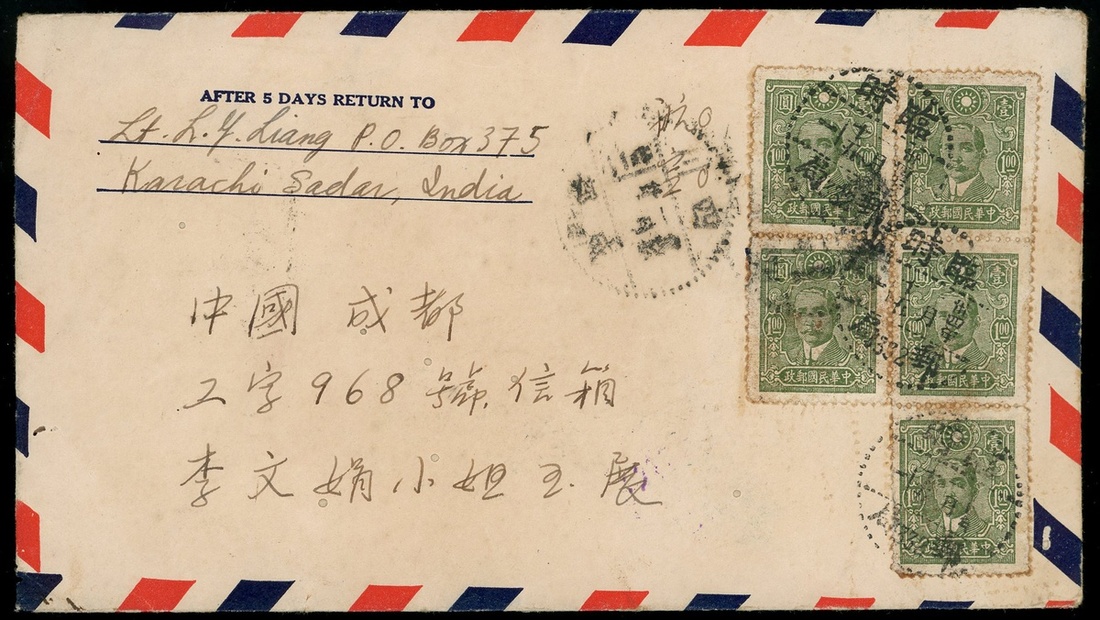 AFTER 5 DAYS RETURN TO
Lt. L. Y. Liang P.O. Box 375
Karachi Sadar, India
航
空
中國 成都
工字968號信箱
李文娟小姐玉展
圓 壹
1.00 1.00
政郵國民華中
圓 壹
1.00 1.00
政郵國民華中
圓 壹
1.00 1.00
政郵國民華中
圓 壹
1.00 1.00
政郵國民華中
圓 壹
1.00 1.00
政郵國民華中
時臨
時臨
郵